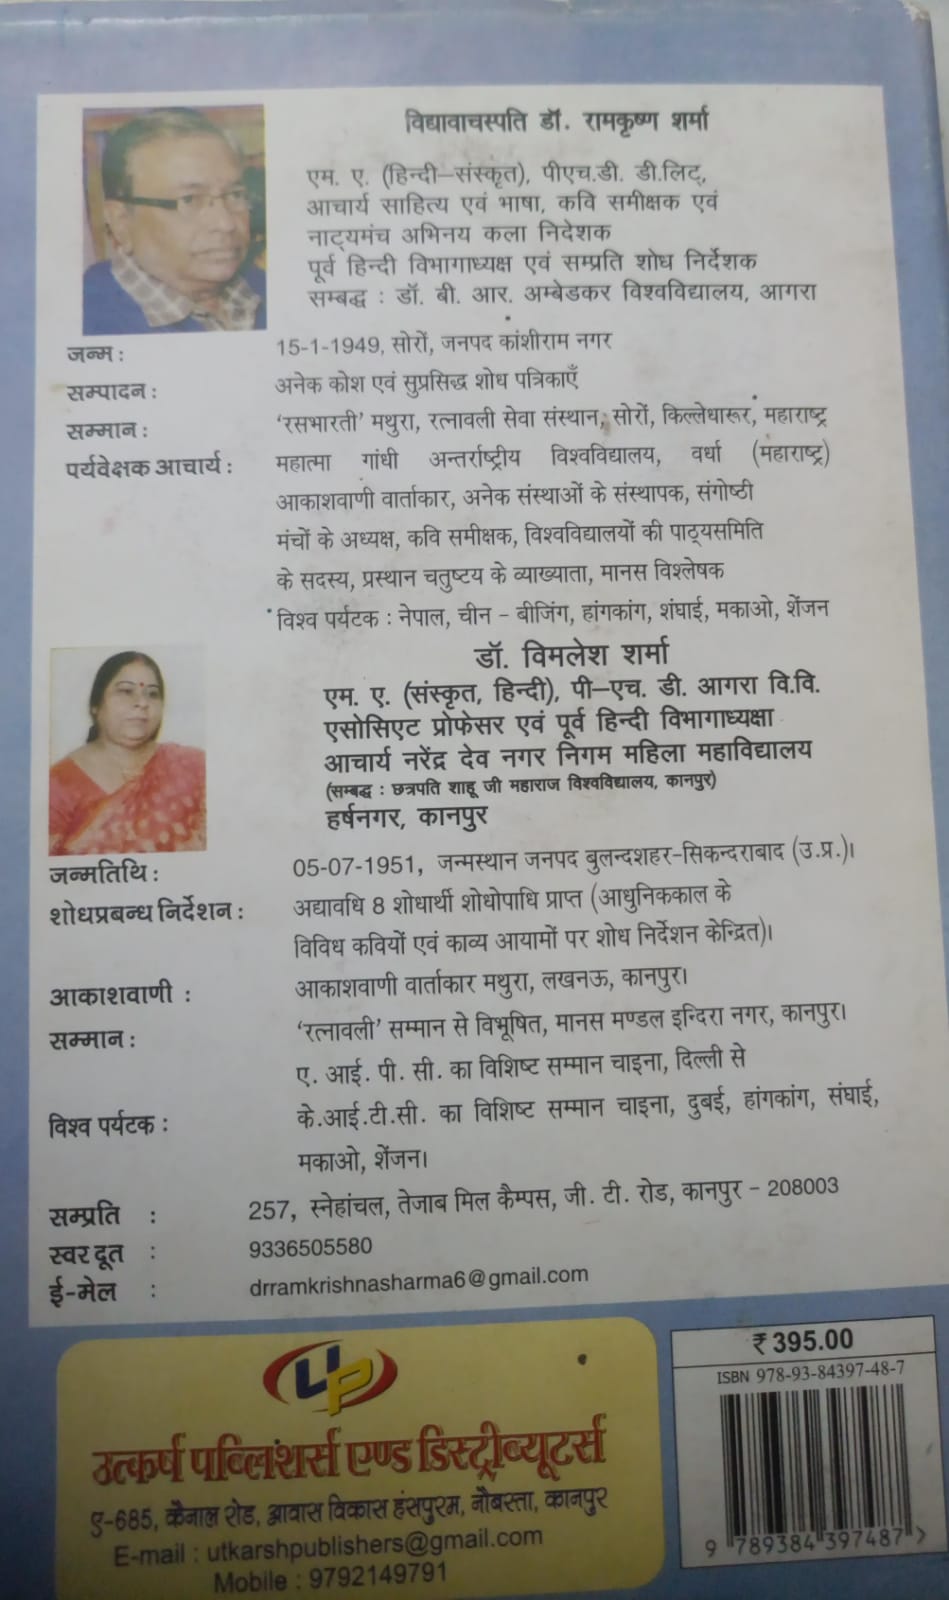 विद्यावाचस्पति डॉ. रामकृष्ण शर्मा
एम. ए. (हिन्दी–संस्कृत), पीएच.डी. डी.लिट्,
आचार्य साहित्य एवं भाषा, कवि समीक्षक एवं
नाट्यमंच अभिनय कला निदेशक
पूर्व हिन्दी विभागाध्यक्ष एवं सम्प्रति शोध निर्देशक
सम्बद्ध : डॉ. बी. आर. अम्बेडकर विश्वविद्यालय, आगरा
जन्म : 15-1-1949, सोरों, जनपद कांशीराम नगर
सम्पादन : अनेक कोश एवं सुप्रसिद्ध शोध पत्रिकाएँ
सम्मान : 'रसभारती' मथुरा, रत्नावली सेवा संस्थान, सोरों, किल्लेधारूर, महाराष्ट्र
पर्यवेक्षक आचार्य : महात्मा गांधी अन्तर्राष्ट्रीय विश्वविद्यालय, वर्धा (महाराष्ट्र)
आकाशवाणी वार्ताकार, अनेक संस्थाओं के संस्थापक, संगोष्ठी
मंचों के अध्यक्ष, कवि समीक्षक, विश्वविद्यालयों की पाठ्यसमिति
के सदस्य, प्रस्थान चतुष्टय के व्याख्याता, मानस विश्लेषक
विश्व पर्यटक : नेपाल, चीन – बीजिंग, हांगकांग, शंघाई, मकाओ, शेंजन
डॉ. विमलेश शर्मा
एम. ए. (संस्कृत, हिन्दी), पी–एच. डी. आगरा वि.वि.
एसोसिएट प्रोफेसर एवं पूर्व हिन्दी विभागाध्यक्षा
आचार्य नरेंद्र देव नगर निगम महिला महाविद्यालय
(सम्बद्ध : छत्रपति शाहू जी महाराज विश्वविद्यालय, कानपुर)
हर्षनगर, कानपुर
जन्मतिथि : 05-07-1951, जन्मस्थान जनपद बुलन्दशहर–सिकन्दराबाद (उ.प्र.)।
शोधप्रबन्ध निर्देशन : अद्यावधि 8 शोधार्थी शोधोपाधि प्राप्त (आधुनिककाल के
विविध कवियों एवं काव्य आयामों पर शोध निर्देशन केन्द्रित)।
आकाशवाणी : आकाशवाणी वार्ताकार मथुरा, लखनऊ, कानपुर।
सम्मान : 'रत्नावली' सम्मान से विभूषित, मानस मण्डल इन्दिरा नगर, कानपुर।
ए. आई. पी. सी. का विशिष्ट सम्मान चाइना, दिल्ली से
विश्व पर्यटक : के.आई.टी.सी. का विशिष्ट सम्मान चाइना, दुबई, हांगकांग, संघाई,
मकाओ, शेंजन।
सम्प्रति : 257, स्नेहांचल, तेजाब मिल कैम्पस, जी. टी. रोड, कानपुर – 208003
स्वर दूत : 9336505580
ई-मेल : drramkrishnasharma6@gmail.com
UP
उत्कर्ष पब्लिशर्स एण्ड डिस्ट्रीब्यूटर्स
ए-685, कैनाल रोड, आवास विकास हंसपुरम, नौबस्ता, कानपुर
E-mail : utkarshpublishers@gmail.com
Mobile : 9792149791
₹ 395.00
ISBN 978-93-84397-48-7
9 789384 397487 >